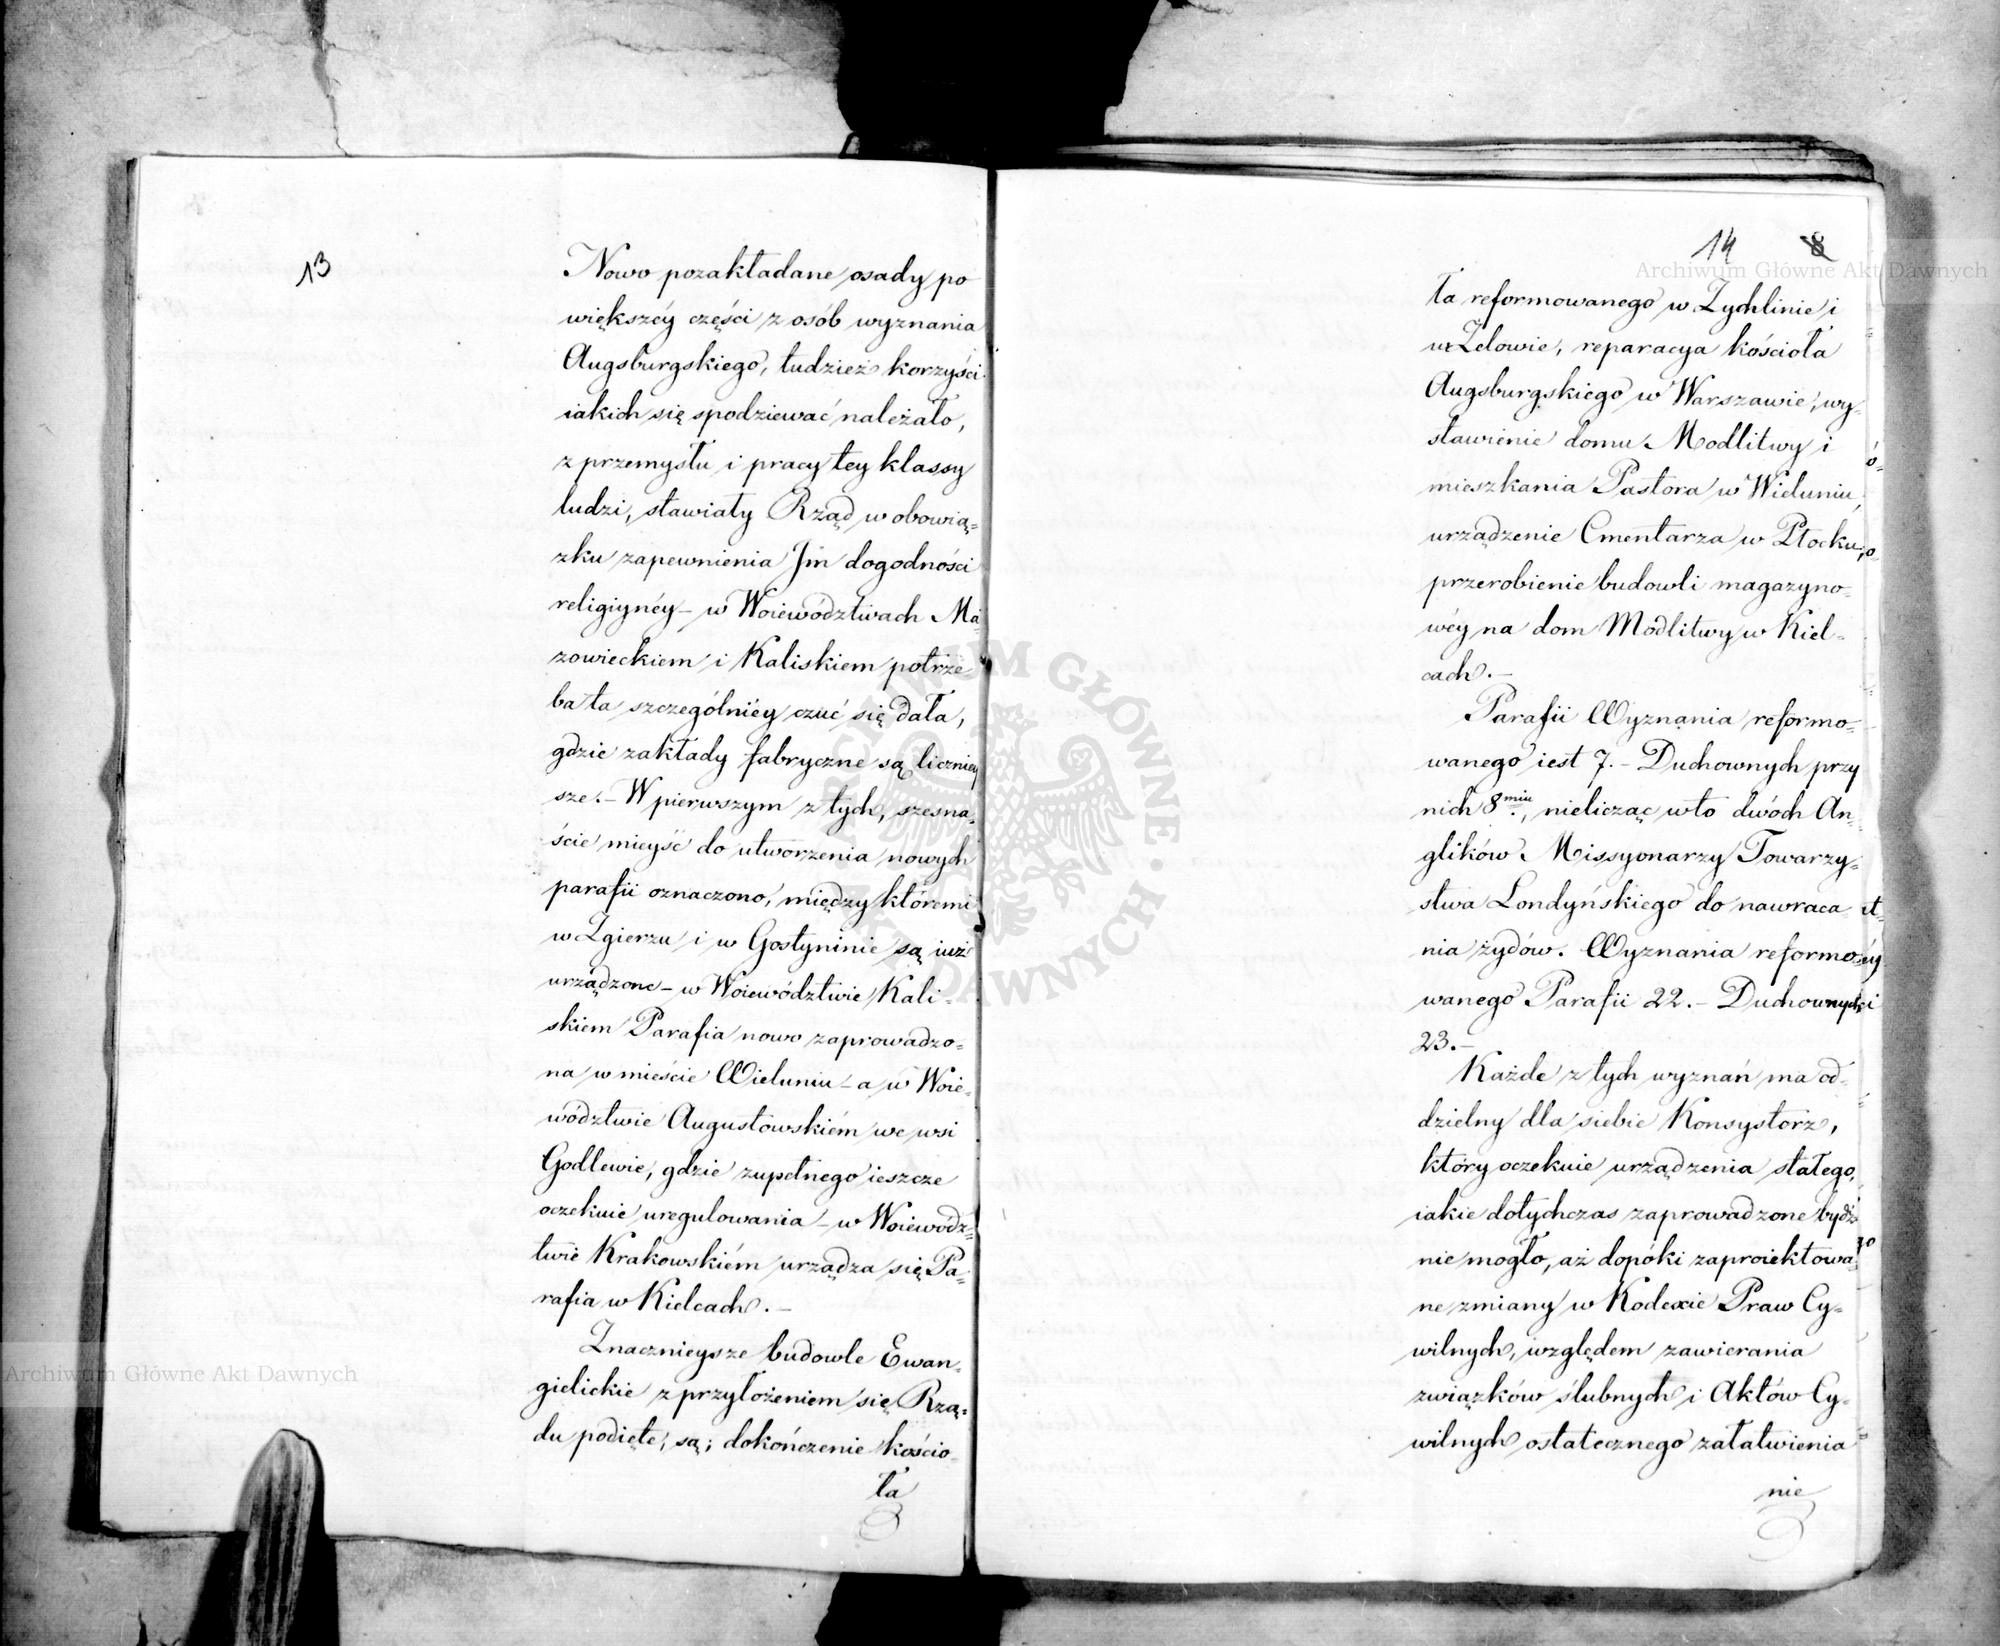 13
Nowo pozakładane osady po
większéy części z osób wyznania
Augsburgskiego, tudzież korzyści
iakich się spodziewać należało,
z przemysłu i pracy tey klassy
ludzi, stawiały Rząd w obowią=
zku zapewnienia Jm dogodności
religiynéy – w Woiewództwach Ma
zowieckiem i Kaliskiem potrze
ba ta szczególniéy czuć się dała,
gdzie zakłady fabryczne są liczniey
sze. – W pierwszym z tych, szesna=
ście mieysć do utworzenia nowych
parafii oznaczono, między któremi
w Zgierzu i w Gostyninie są iuż
urządzone – w Woiewództwie Kali=
skiem Parafia nowo zaprowadzo=
na w mieście Wieluniu – a w Woie=
wództwie Augustowskiém we wsi
Godlewie, gdzie zupełnego ieszcze
oczekuie uregulowania – w Woiewódz=
twie Krakowskiém urządza się Pa=
rafia w Kielcach. –
Znacznieysze budowle Ewan=
gielickie z przyłożeniem się Rzą=
du podięte, są; dokończenie kościo=
ła
14 8
ła reformowanego w Zychlinie i
w Zelowie, reparacya kościoła
Augsburgskiego w Warszawie, wy=
stawienie domu Modlitwy i
mieszkania Pastora w Wieluniu,
urządzenie Cmentarza w Płocku,
przerobienie budowli magazyno=
wéy na dom Modlitwy w Kiel=
cach. –
Parafii Wyznania reformo=
wanego iest 7. – Duchownych przy
nich 8miu, nielicząc w to dwóch An=
glików Missyonarzy Towarzy=
stwa Londyńskiego do nawraca
nia żydów. Wyznania reformo=
wanego Parafii 22. – Duchownych
23. –
Każde z tych wyznań ma od=
dzielny dla siebie Konsystorz,
który oczekuie urządzenia stałego,
iakie dotychczas zaprowadzone bydź
nie mogło, aż dopóki zaproiektowa=
ne zmiany w Kodexie Praw Cy=
wilnych, względem zawierania
związków ślubnych i Aktów Cy=
wilnych ostatecznego załatwienia
nie
Archiwum Główne Akt Dawnych
Archiwum Główne Akt Dawnych
ARCHIWUM GŁÓWNE AKT DAWNYCH